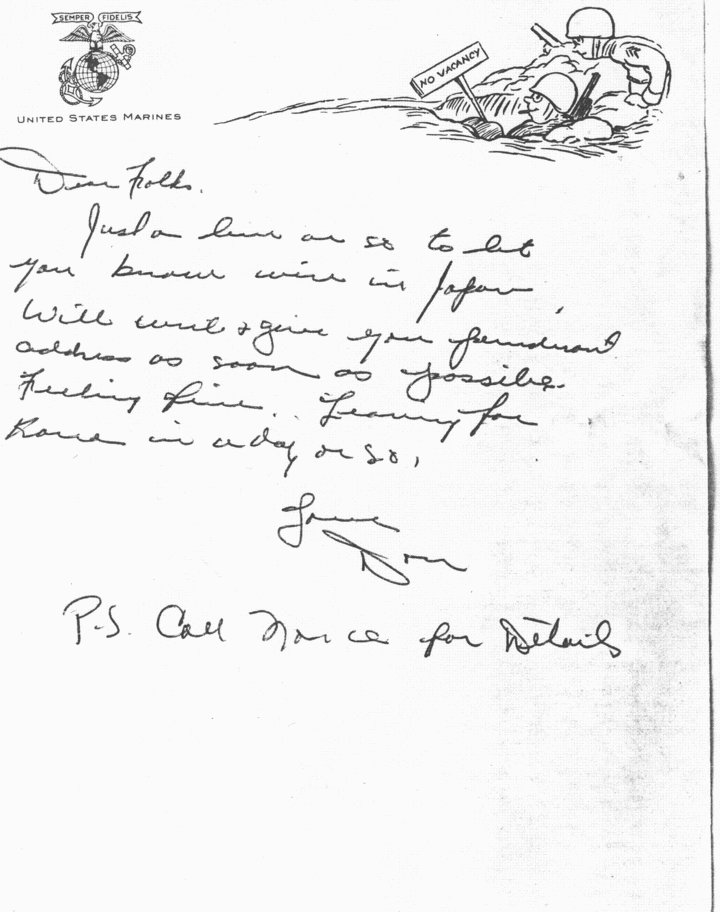 SEMPER FIDELIS
UNITED STATES MARINES
NO VACANCY
Dear Folks.
Just a line or so to let
you know we're in Japan,
Will write & give you permanent
address as soon as possible.
Feeling fine.. Leaving for
Korea in a day or so,
Love
Don
P.S. Call for Details